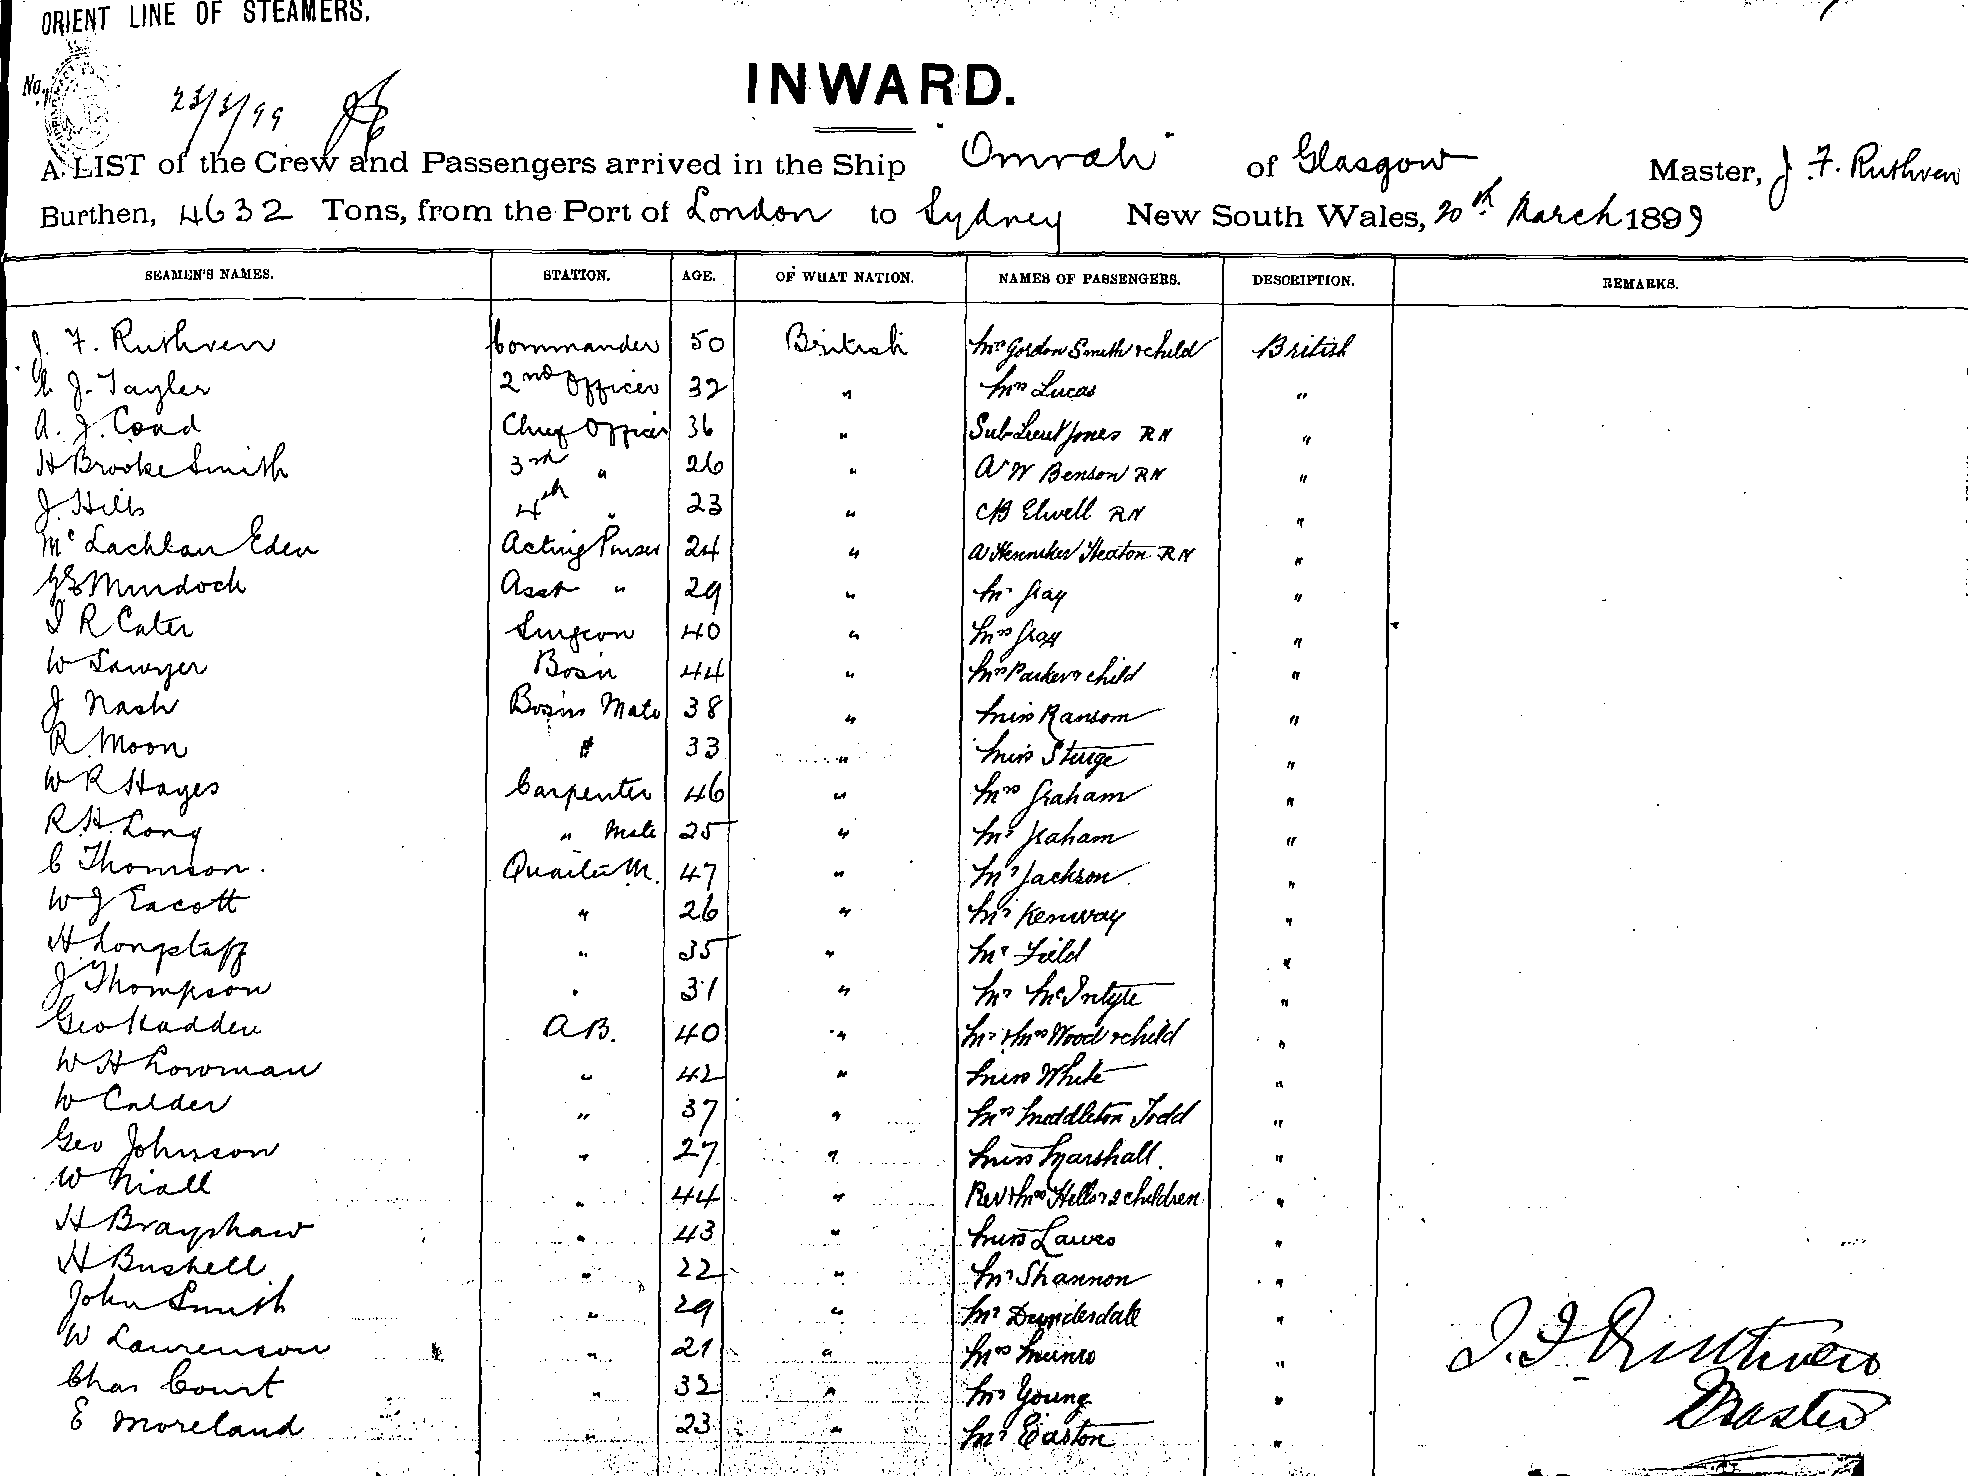 ORIENT LINE OF STEAMERS.
No.
23/3/99
INWARD.
A LIST of the Crew and Passengers arrived in the Ship "Omrah" of Glasgow Master, J. F. Ruthven
Burthen, 4632 Tons, from the Port of London to Sydney New South Wales, 20th March 1899
SEAMEN'S NAMES. STATION. AGE. OF WHAT NATION. NAMES OF PASSENGERS. DESCRIPTION. REMARKS.
J. F. Ruthven Commander 50 British Mrs Gordon Smith & child British
J. Tayler 2nd Officer 32 " Mrs Lucas "
A. J. Coad Chief Officer 36 " Sub-Lieut Jones RN "
H Brooke Smith 3rd " 26 " A W Benson RN "
J. Hills 4th " 23 " C B Elwell RN "
Mc Lachlan Eden Acting Purser 24 " A Henniker Heaton RN "
Murdoch Asst " 29 " Mr Gray "
R Cater Surgeon 40 " Mrs Gray "
W Sawyer Bosn 44 " Mrs Parker & child "
J Nash Bosn's Mate 38 " Miss Ransom "
R Moon " 33 " Miss Sturge "
W R Hayes Carpenter 46 " Mrs Graham "
R. H. Long " Mate 25 " Mr Graham "
C Thomson. Quarter M. 47 " Mr Jackson "
W J Eacott " 26 " Mr Kenway "
H Longstaff " 35 " Mr Field "
J Thompson " 31 " Mr McIntyre "
Geo Hadden A.B. 40 " Mr & Mrs Wood & child "
W H Lowman " 42 " Miss White "
W Calder " 37 " Mrs Middleton Todd "
Geo Johnson " 27 " Miss Marshall. "
W Niall " 44 " Rev & Mrs Heller & 2 children "
H Brayshaw " 43 " Miss Lawes "
H Bushell " 22 " Mr Shannon "
John Smith " 29 " Mr Dunderdale "
W Laurenson " 21 " Mrs Munro "
Chas Court " 32 " Mr Young "
E Moreland " 23 " Mr Easton "
J. F. Ruthven
Master